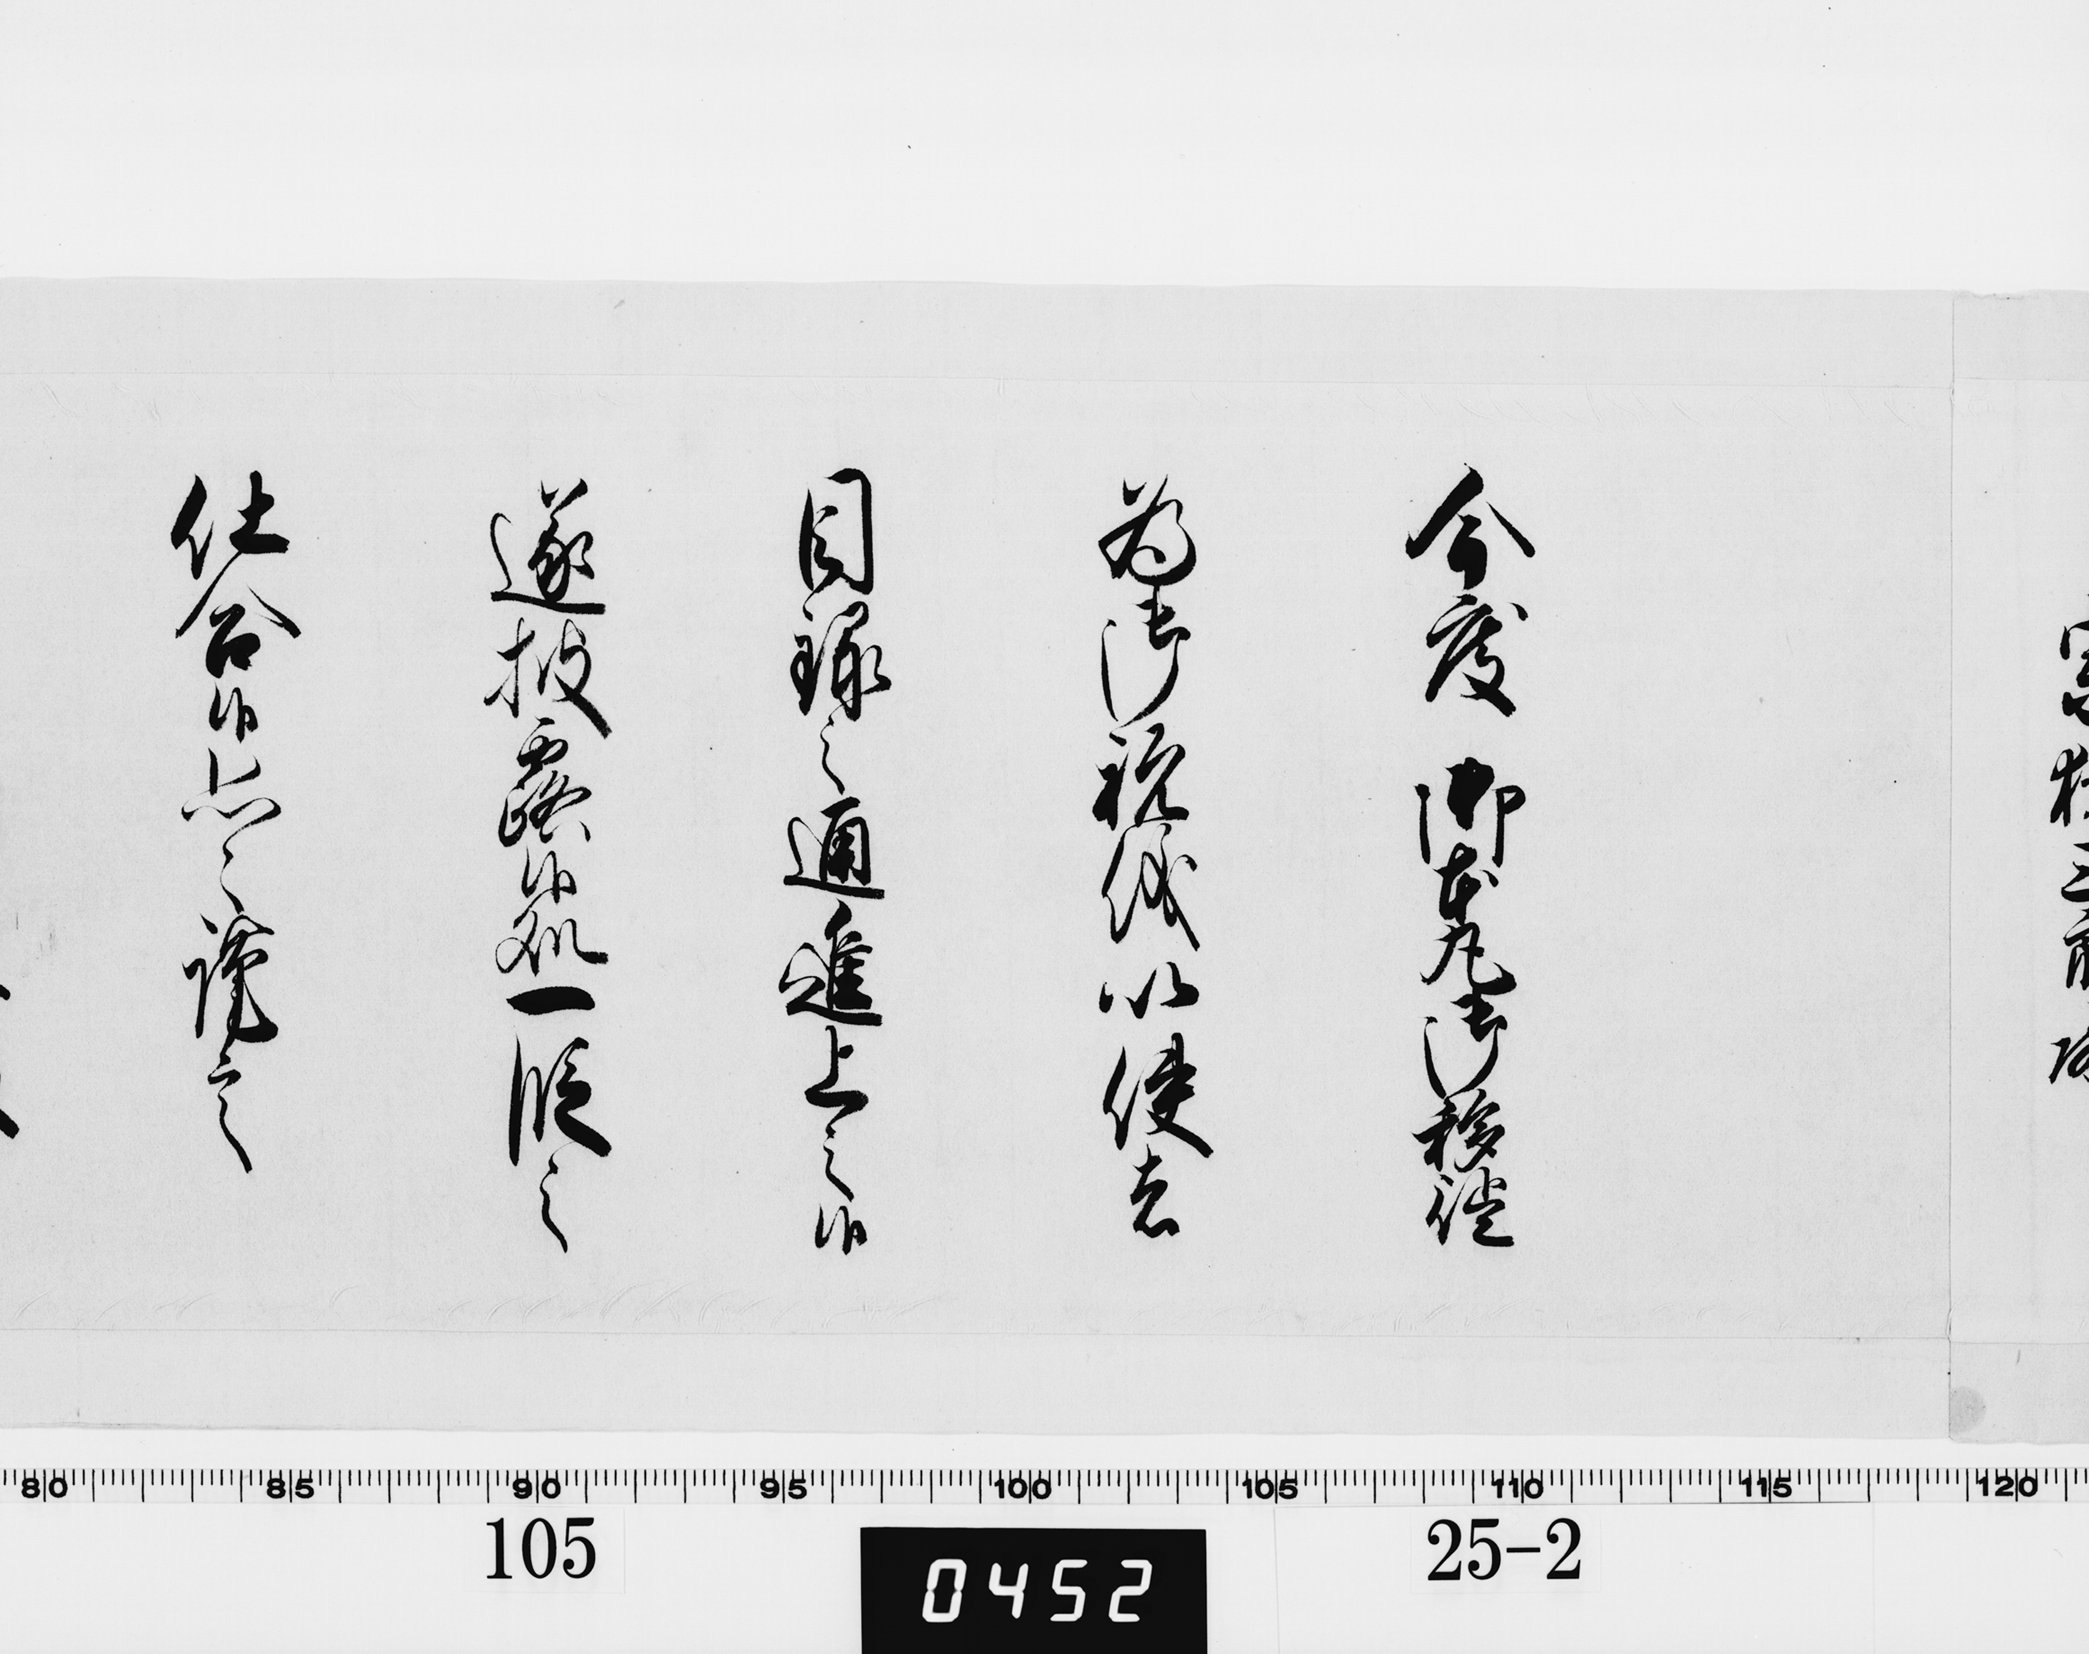 今度 御本丸御移徙
為御祝儀以使者
目録之通進上之候
遂披露候処一段之
仕合候恐々謹言
80 85 90 95 100 105 110 115 120
105
0452
25-2